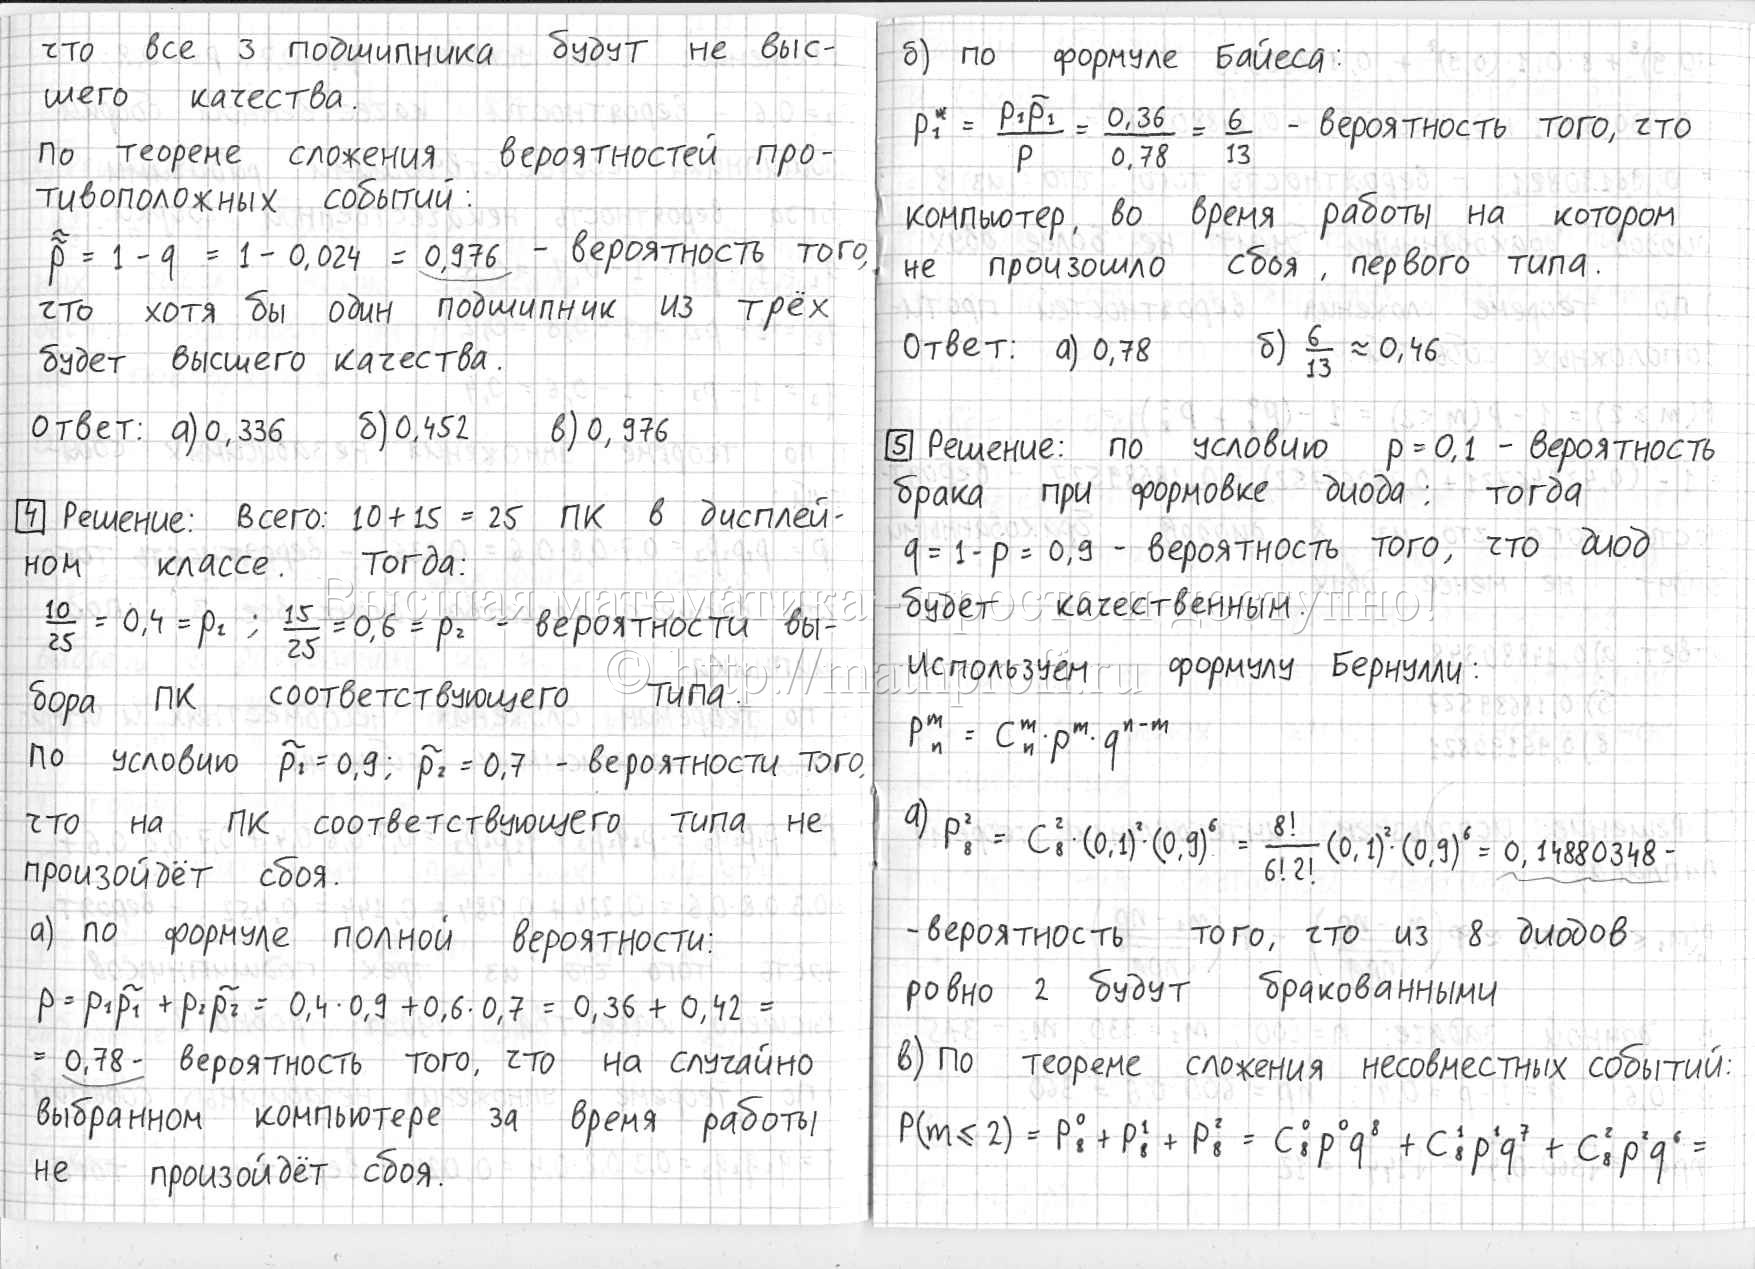 что все 3 подшипника будут не выс-
шего качества.
По теореме сложения вероятностей про-
тивоположных событий:
p̃̃ = 1 - q = 1 - 0,024 = 0,976 - вероятность того,
что хотя бы один подшипник из трёх
будет высшего качества.
Ответ: а) 0,336 б) 0,452 в) 0,976
4 Решение: Всего: 10+15 = 25 ПК в дисплей-
ном классе. Тогда:
10/25 = 0,4 = p₁ ; 15/25 = 0,6 = p₂ - вероятности вы-
бора ПК соответствующего типа.
По условию p̃₁ = 0,9; p̃₂ = 0,7 - вероятности того,
что на ПК соответствующего типа не
произойдёт сбоя.
а) по формуле полной вероятности:
p = p₁p̃₁ + p₂p̃₂ = 0,4·0,9 + 0,6·0,7 = 0,36 + 0,42 =
= 0,78 - вероятность того, что на случайно
выбранном компьютере за время работы
не произойдёт сбоя.
б) по формуле Байеса:
p₁* = p₁p̃₁/p = 0,36/0,78 = 6/13 - вероятность того, что
компьютер, во время работы на котором
не произошло сбоя, первого типа.
Ответ: а) 0,78 б) 6/13 ≈ 0,46
5 Решение: по условию p = 0,1 - вероятность
брака при формовке диода; тогда
q = 1 - p = 0,9 - вероятность того, что диод
будет качественным.
Используем формулу Бернулли:
Pₙᵐ = Cₙᵐ·pᵐ·qⁿ⁻ᵐ
а) P₈² = C₈²·(0,1)²·(0,9)⁶ = 8!/6!2! (0,1)²·(0,9)⁶ = 0,14880348 -
- вероятность того, что из 8 диодов
ровно 2 будут бракованными
в) По теореме сложения несовместных событий:
P(m ⩽ 2) = P₈⁰ + P₈¹ + P₈² = C₈⁰p⁰q⁸ + C₈¹p¹q⁷ + C₈²p²q⁶ =
Высшая математика - просто и доступно!
© http://mathprofi.ru